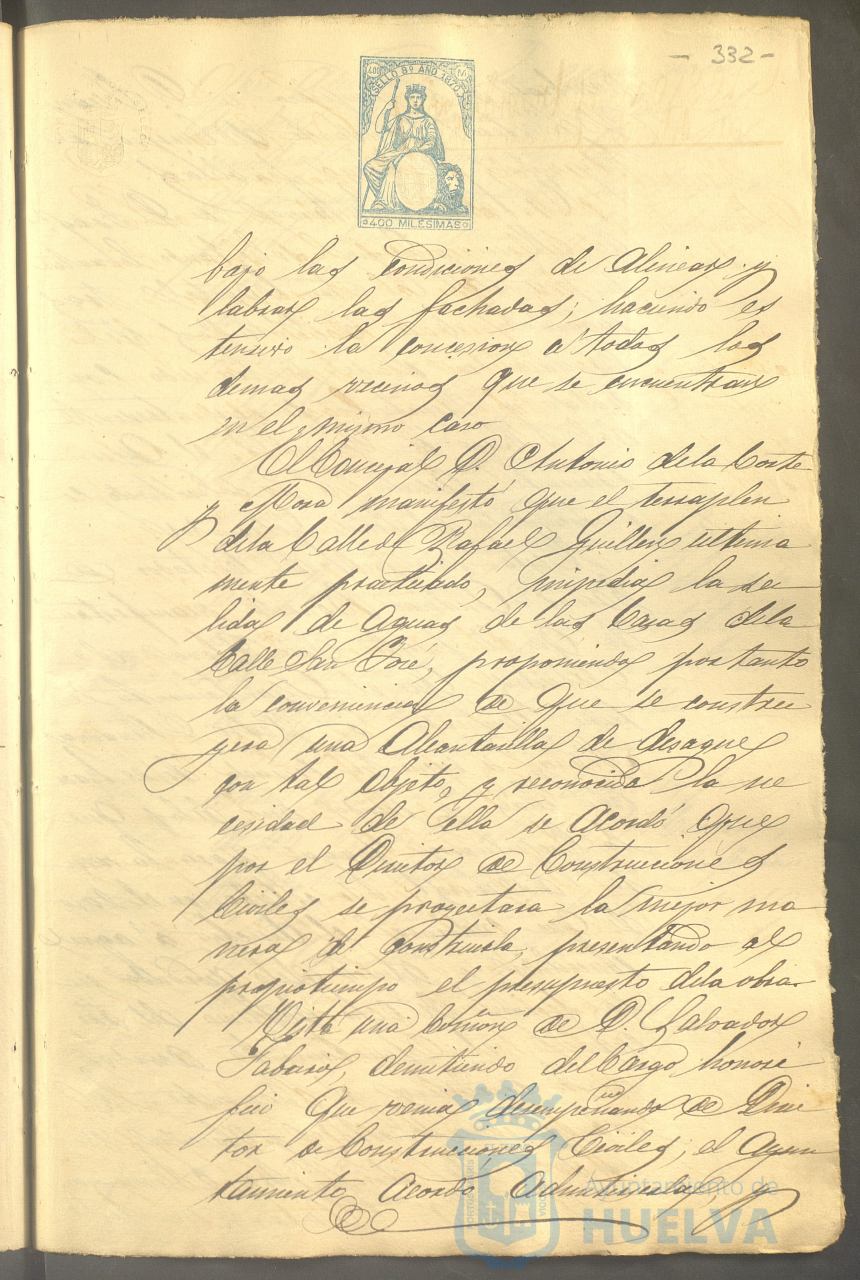 - 332 -
SELLO 8º AÑO 1870
400 MILESIMAS
bajo las condiciones de alinear y
labrar las fachadas; haciendo es
tensivo la concesion a todos los
demas vecinos que se encuentran
en el mismo caso
El Concejal D. Antonio de la Corte
y Mora manifestó que el terraplen
de la Calle de Rafael Guillen ultima
mente practicado, impedia la sa
lida de aguas de las Casas de la
Calle San José, proponiendo por tanto
la conveniencia de que se constru
yera una Alcantarilla de desague
con tal objeto, y reconocida la ne
cesidad de ella se acordó que
por el Director de Construcciones
Civiles se proyectara la mejor ma
nera de construirla, presentando al
propio tiempo el presupuesto de la obra.
Vista una Comon de D. Salvador
demitiendo del Cargo honori
fico que venia desempeñando de Direc
tor de Construcciones Civiles; el Ayun
tamiento acordó admitirsela, y
Ayuntamiento de
HUELVA